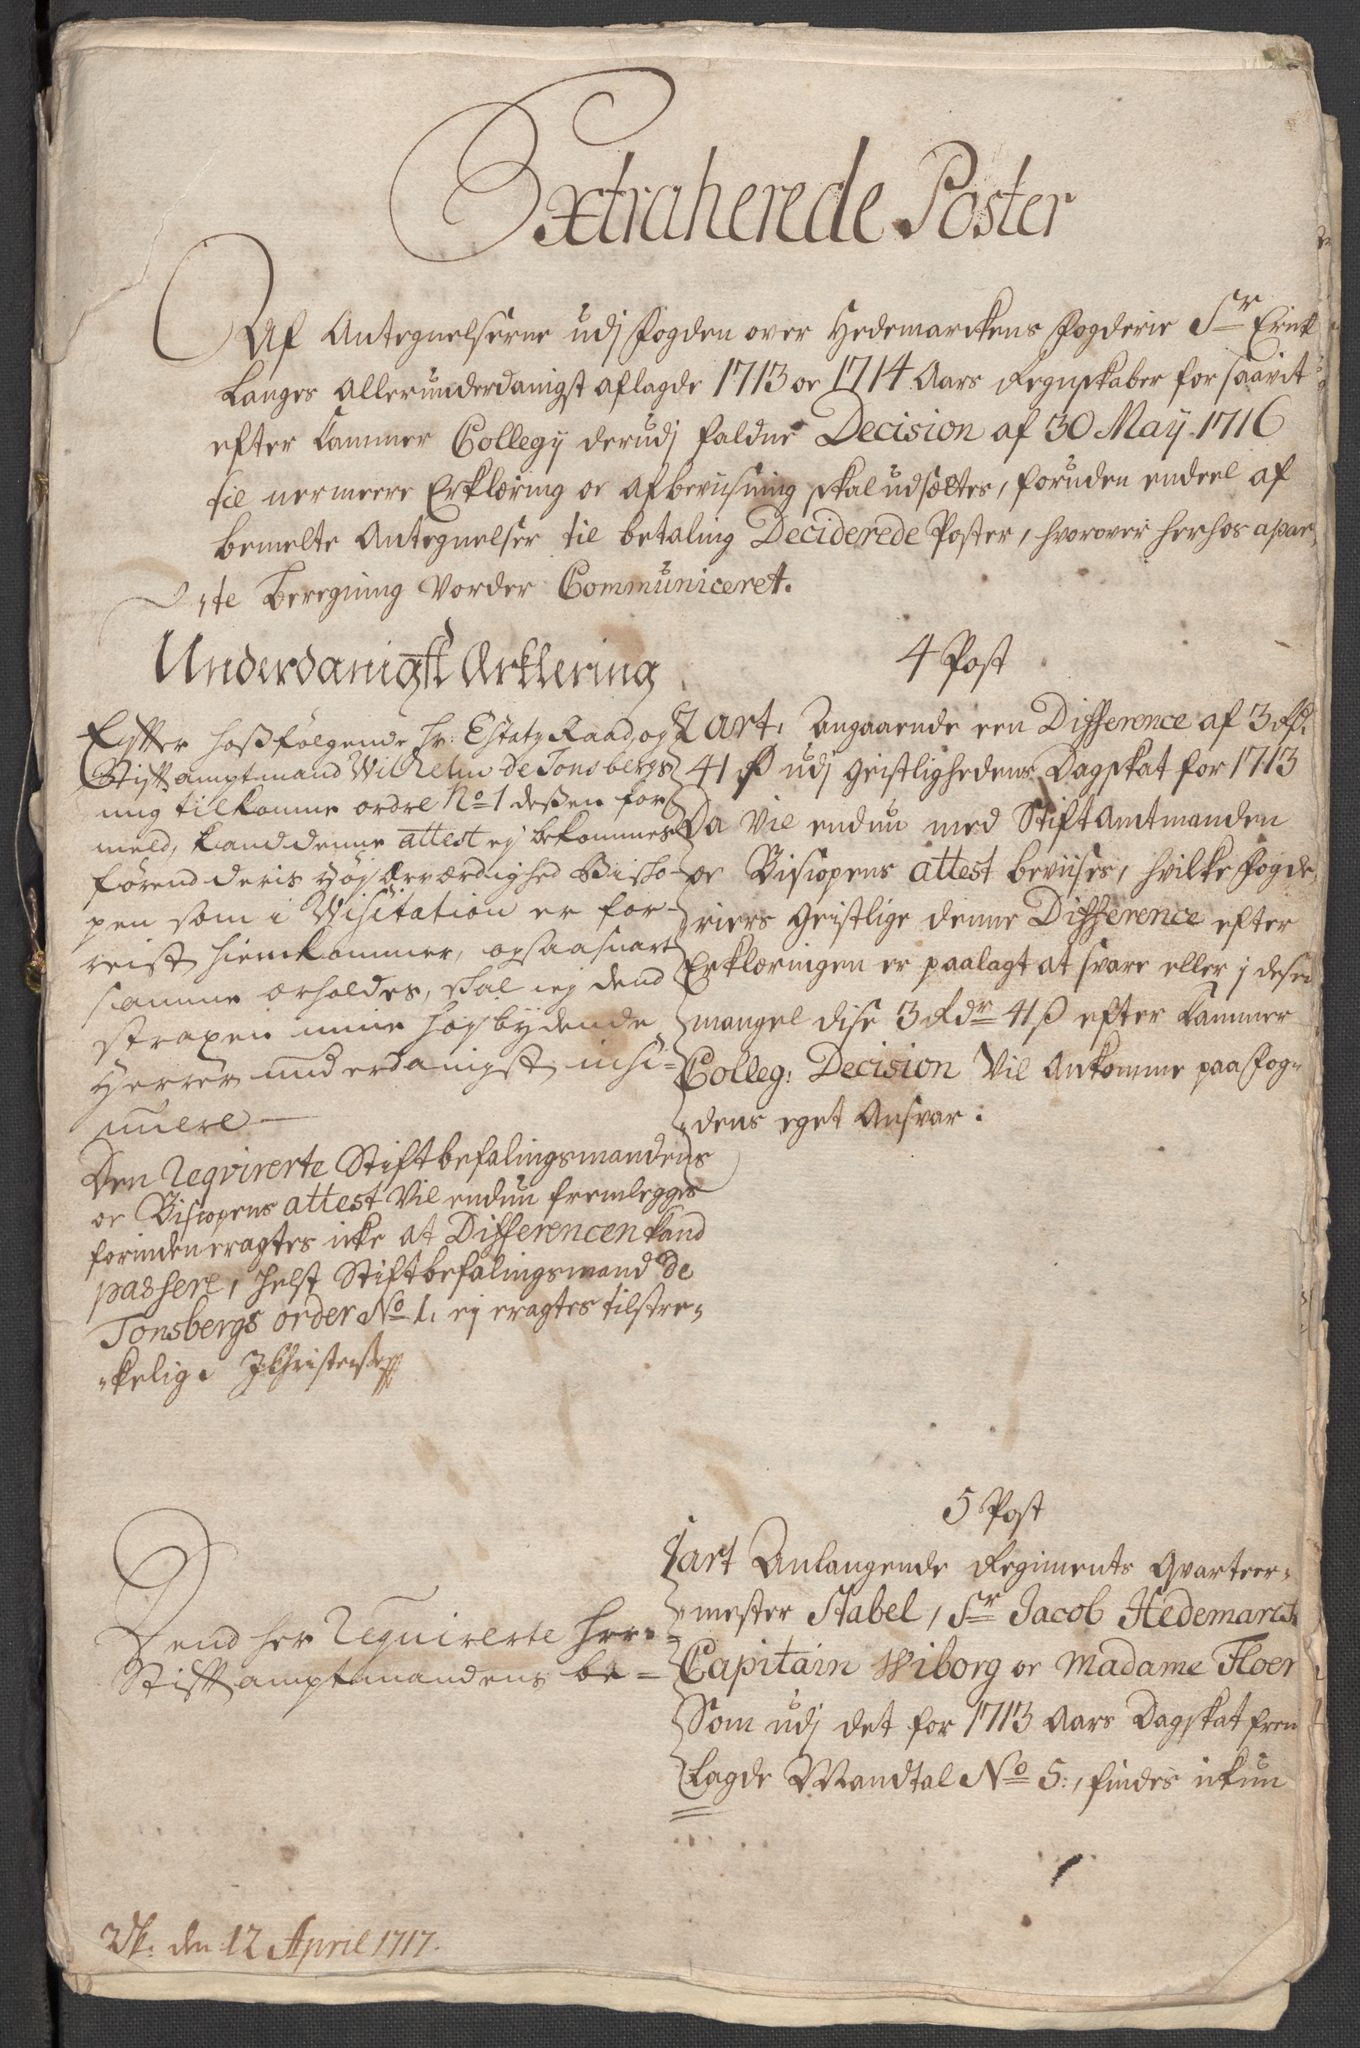 Extraherede Poster
Af Antegnelserne udj Fogden over Hedemarckens Fogderie Sr Erick
Langes Allerunderdanigst aflagde 1713 oc 1714 Aars Regnskaber for saavit
efter Cammer Collegij derudj faldne Decision af 30 May 1716
til nermeere Erklæring oc afbeviisning skal udsættes, foruden endeel af
bemelte Antegnelser til betaling Deciderede Poster, hvorover herhos apar„
„te Beregning vorder Communiceret.
Underdanigst Ærklering
Efter hoßfølgende Hr: Estatz Raad og
Stifftamptmand Wilhelm de Tonsbergs
mig tilkomne ordre No 1 deßen for„
meld, kand denne attest ej bekommes
førend deris Højærværdighed Bisko„
pen som i Visitation er for„
reist hiemkommer, og saa snart
samme erholdes, skal ieg dend
straxen mine høybydende
Herrer underdanigst insi„
nuere
Den Reqvirerte Stiftbefalingsmandens
oc Biscopens attest vil endnu fremlegges
forinden eragtes icke at Differencen kand
passere, helst Stiftbefalingsmand de
Tonsbergs order No 1. ej eragtes tilstre„
„kelig. JChristensen
Dend her Requirerte Herr
Stifftamptmandens be„
4 Post
2 art. Angaaende een Difference af 3 Rd.
41 ß udj Geistlighedens Dagskat for 1713
Da vil endnu med Stiftamtmanden
oc Biscopens attest beviises, hvilke Fogde„
„riers Geistlige denne Difference efter
Erklæringen er paalagt at svare eller j desen
mangel dise 3 Rdr 41 ß efter Cammer
Colleg: Decision vil ankomme paa Fog„
„dens eget Ansvar:
5 Post
1 art Anlangende Regiments Qvarteer„
„mester Stabel, Sr Jacob Hedemarck
Capitain Wiborg oc Madame Floer
Som udj det for 1713 Aars Dagskat frem
Lagde Mandtal No 5:, findes ickun
den 12 April 1717.